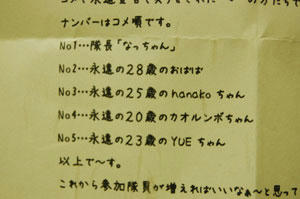 ナンバーはコメ順です。
No1…隊長「なっちゃん」
No2…永遠の28歳のおばば
No3…永遠の25歳のhanakoちゃん
No4…永遠の20歳のカオルンボちゃん
No5…永遠の23歳のYUEちゃん
以上で〜す。
これから参加隊員が増えればいいなぁ〜と思って